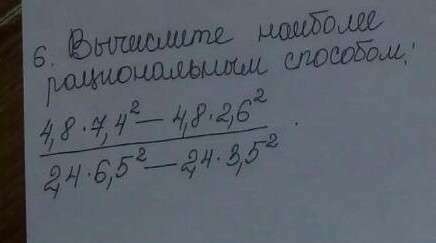 6. Вычислите наиболее
рациональным способом:
4,8 · 7,4² — 4,8 · 2,6²
2,4 · 6,5² — 2,4 · 3,5²
.